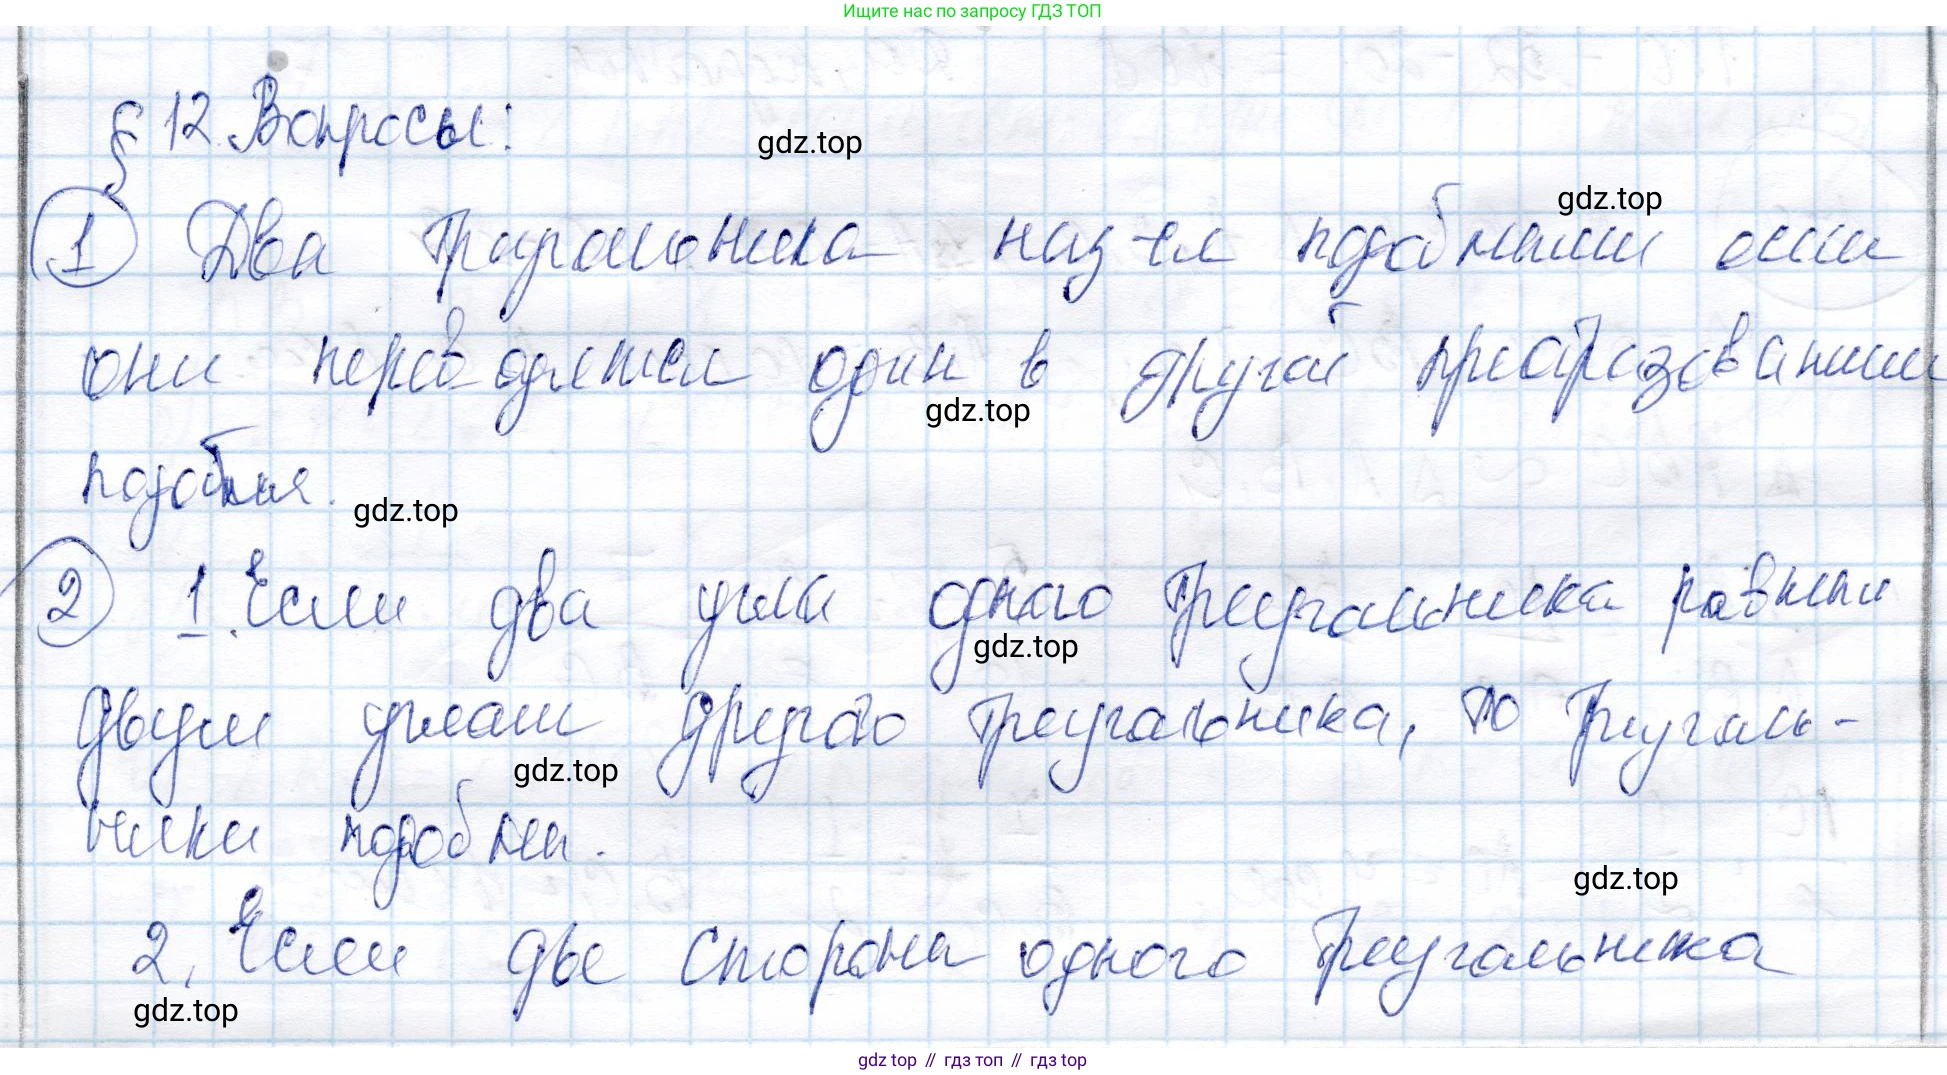 Ищите нас по запросу ГДЗ ТОП
§ 12. Вопросы:
gdz.top
gdz.top
① Два треугольника наз-ся подобными если
они переводятся один в другой преобразованием
gdz.top
подобия.
gdz.top
② 1. Если два угла одного треугольника равны
gdz.top
двум углам другого треугольника, то треуголь-
gdz.top
ники подобны.
gdz.top
2. Если две стороны одного треугольника
gdz.top
gdz top // гдз топ // гдз top